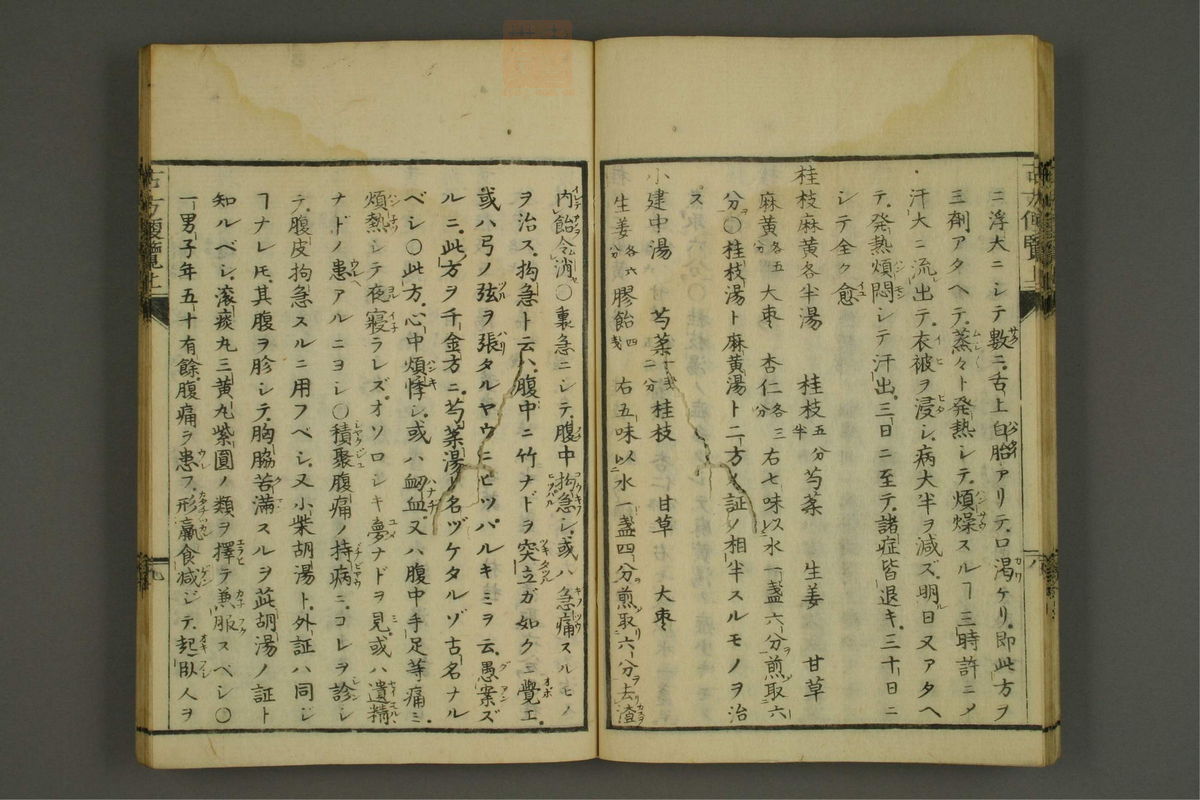 ニ浮大ニシテ數ニ舌上白胎アリテ口渇ケリ即此方ヲ
三劑アタヘテ蒸々ト発熱シテ煩燥スルヿ三時許ニメ
汗大ニ流出テ衣被ヲ浸シ病大半ヲ減ズ明日又アタヘ
テ発熱煩悶シテ汗出三日ニ至テ諸症皆退キ三十日ニ
シテ全ク愈
桂枝麻黄各半湯 桂枝五分半 芍薬 生姜 甘草
麻黄各五分 大棗 杏仁各三分 右七味以水一盞六分煎取六
分〇桂枝湯ト麻黄湯ト二方ノ証ノ相半スルモノヲ治
ス
小建中湯 芍薬 桂枝 甘草 大棗
生姜各六分 膠飴四戔 右五味以水一盞四分煎取六分去渣
内飴令消〇裏急ニシテ腹中拘急シ或ハ急痛スルモノ
ヲ治ス拘急ト云ハ腹中ニ竹ナドヲ突立ガ如クニ覺エ
或ハ弓ノ弦ヲ張タルヤウニヒツパルキミヲ云愚案ズ
ルニ此方ヲ千金方ニ芍薬湯ト名ヅケタルゾ古名ナル
ベシ〇此方心中煩悸シ或ハ衂血又ハ腹中手足等痛ミ
煩熱シテ夜寝ラレズオソロシキ夢ナドヲ見或ハ遺精
ナドノ患アルニヨシ〇積聚腹痛ノ持病ニコレヲ診シ
テ腹皮拘急スルニ用フベシ又小柴胡湯ト外証ハ同シ
ヿナレ𪜈其腹ヲ胗シテ胸脇苦滿スルヲ茈胡湯ノ証ト
知ルベシ滚痰丸三黄丸紫圓ノ類ヲ擇テ兼服スベシ〇
一男子年五十有餘腹痛ヲ患フ形羸食减ジテ起臥人ヲ
古方便覽上
八
古方便覽上
九